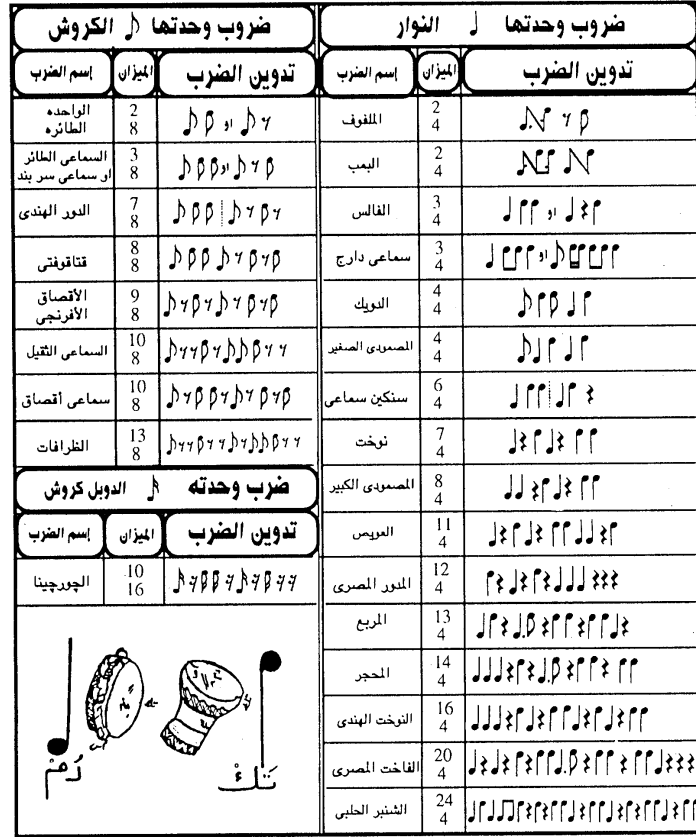 ضروب وحدتها ♩ النوار
تدوين الضرب الميزان إسم الضرب
2/4 الملفوف
2/4 البمب
او 3/4 الفالس
او 3/4 سماعى دارج
4/4 الدويك
4/4 المصمودى الصغير
6/4 سنكين سماعى
7/4 نوخت
8/4 المصمودى الكبير
11/4 العويص
12/4 المدور المصرى
13/4 المربع
14/4 المحجر
16/4 النوخت الهندى
20/4 الفاخت المصرى
24/4 الشنبر الحلبى
ضروب وحدتها ♪ الكروش
تدوين الضرب الميزان إسم الضرب
او 2/8 الواحده
الطائره
او 3/8 السماعى الطائر
او سماعى سر بند
7/8 الدور الهندى
8/8 قتاقوفتى
9/8 الأقصاق
الأفرنجى
10/8 السماعى الثقيل
10/8 سماعى أقصاق
13/8 الظرافات
ضرب وحدته الدوبل كروش
تدوين الضرب الميزان إسم الضرب
10/16 الچورچينا
دُمْ
تَكْ